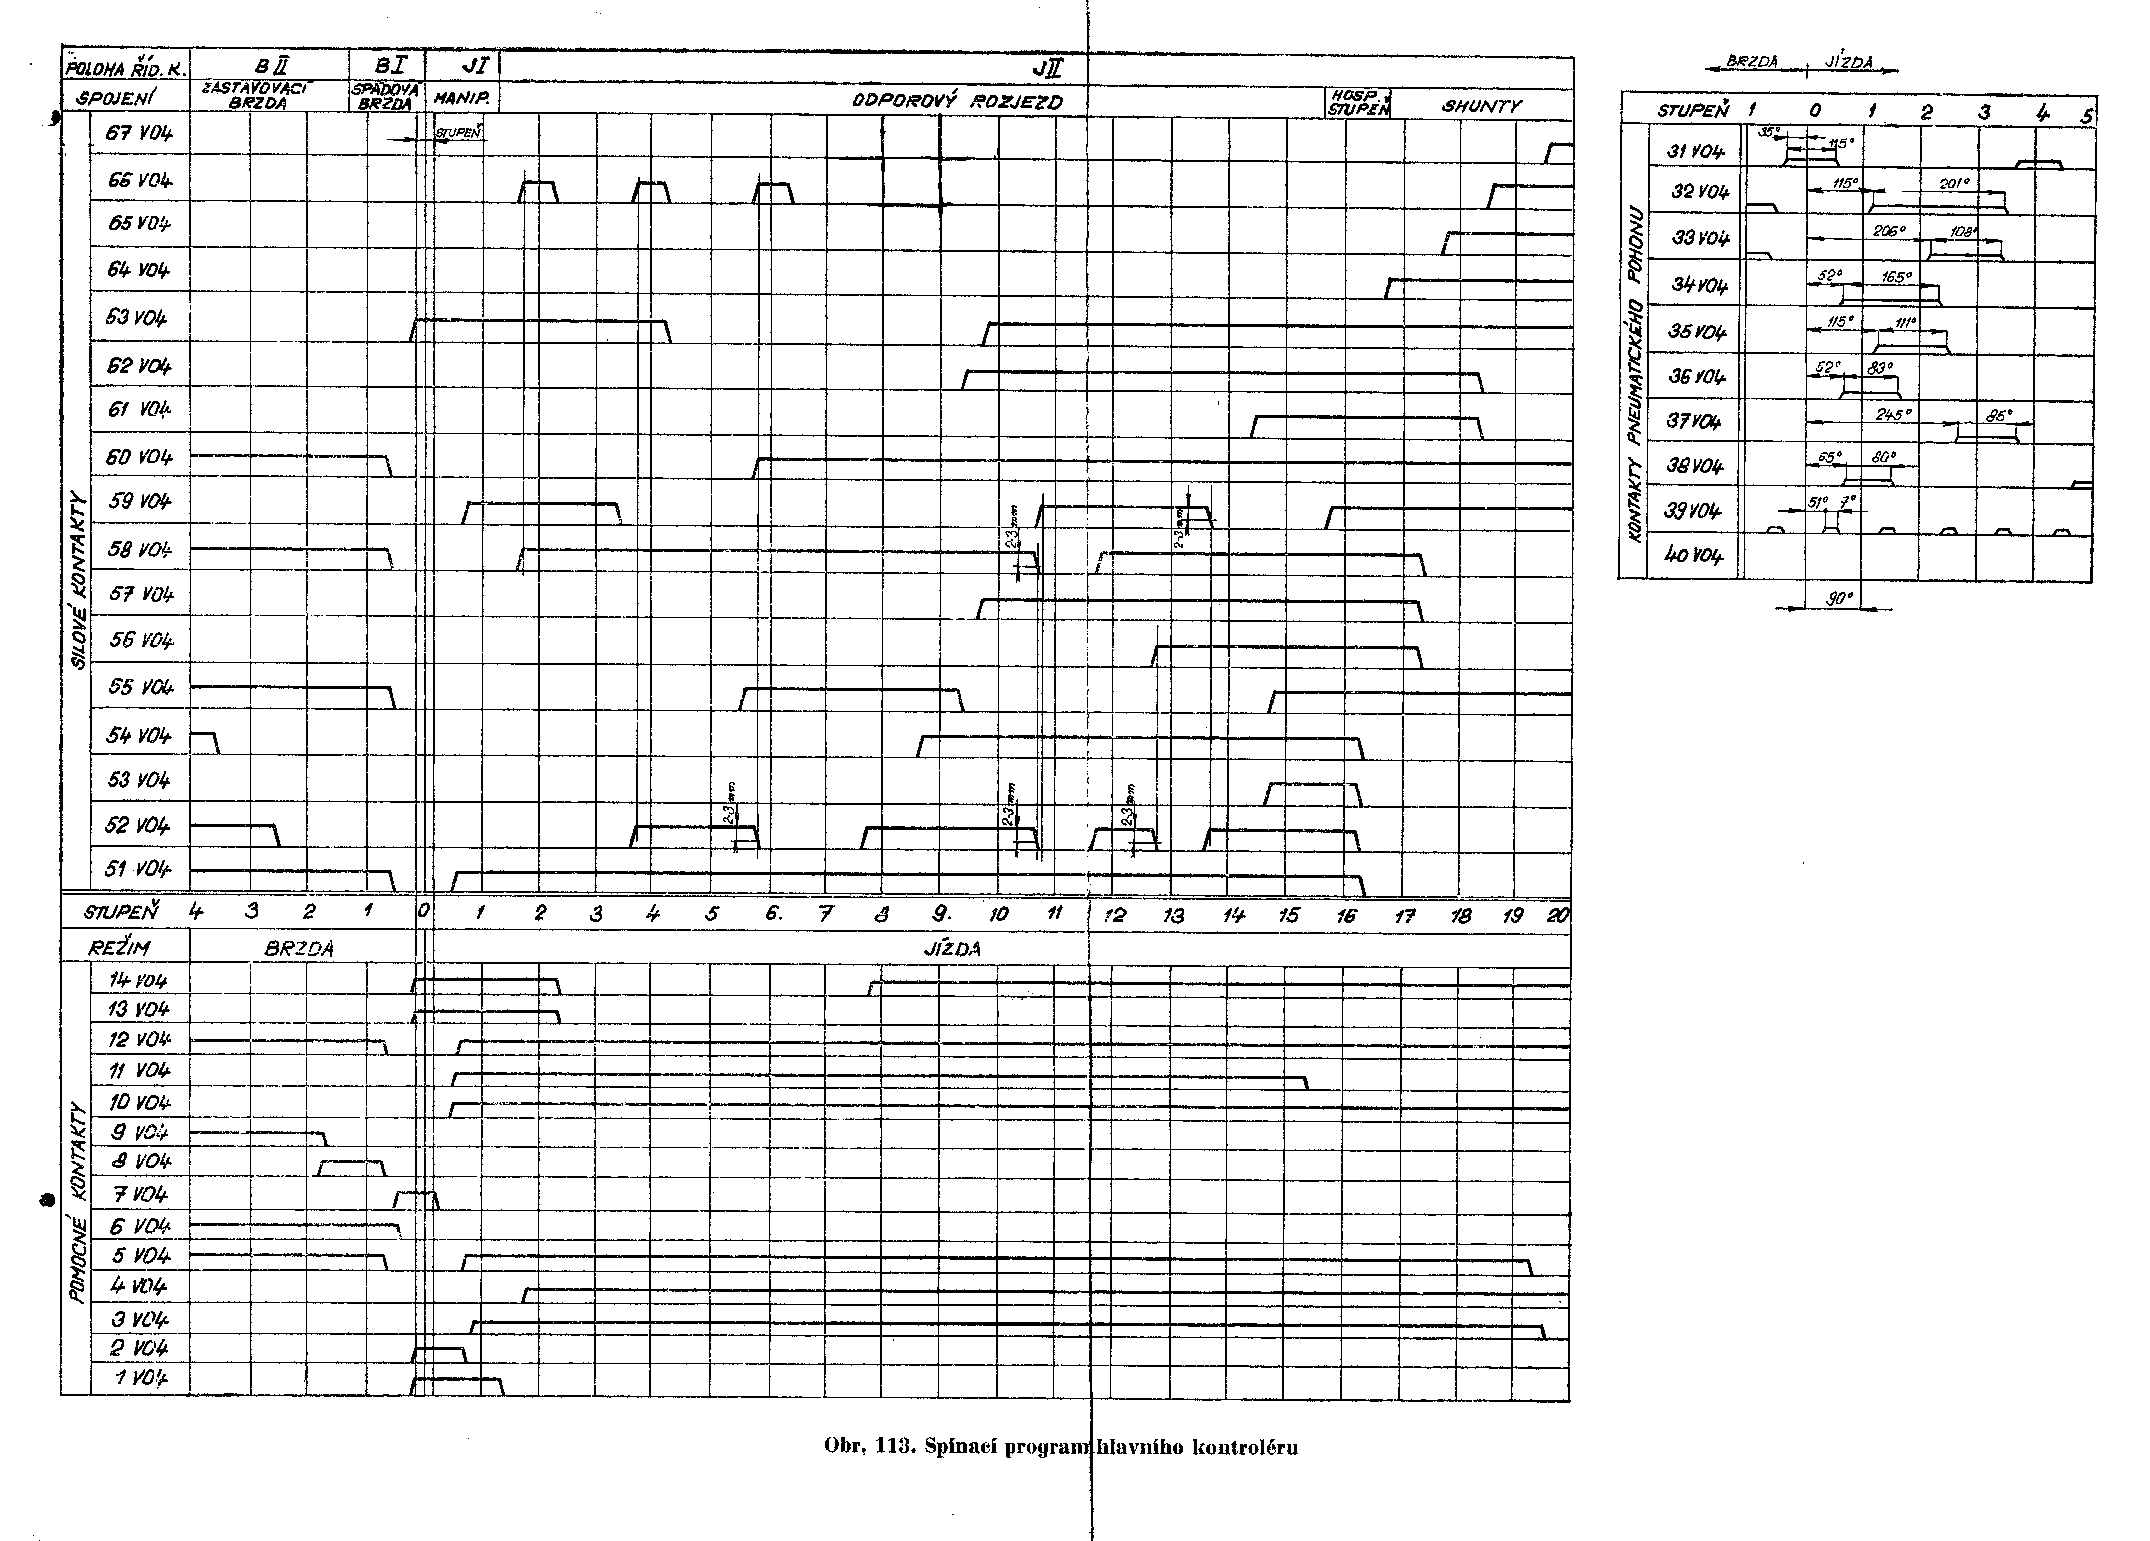 POLOHA ŘÍD. K. BII BI JI JII
SPOJENÍ ZASTAVOVACÍ BRZDA SPÁDOVÁ BRZDA MANIP. ODPOROVÝ ROZJEZD HOSP. STUPEŇ SHUNTY
SILOVÉ KONTAKTY
67 V04 STUPEŇ
66 V04
65 V04
64 V04
63 V04
62 V04
61 V04
60 V04
59 V04
2-3mm 2-3mm
58 V04
57 V04
56 V04
55 V04
54 V04
53 V04
2-3mm 2-3mm 2-3mm
52 V04
51 V04
STUPEŇ 4 3 2 1 0 1 2 3 4 5 6. 7 8 9. 10 11 12 13 14 15 16 17 18 19 20
REŽIM BRZDA JÍZDA
POMOCNÉ KONTAKTY
14 V04
13 V04
12 V04
11 V04
10 V04
9 V04
8 V04
7 V04
6 V04
5 V04
4 V04
3 V04
2 V04
1 V04
BRZDA JÍZDA
STUPEŇ 1 0 1 2 3 4 5
KONTAKTY PNEUMATICKÉHO POHONU
31 V04 35° 115°
32 V04 115° 201°
33 V04 206° 108°
34 V04 52° 165°
35 V04 115° 111°
36 V04 52° 83°
37 V04 245° 85°
38 V04 55° 80°
39 V04 51° 7°
40 V04
90°
Obr. 113. Spínací program hlavního kontroléru